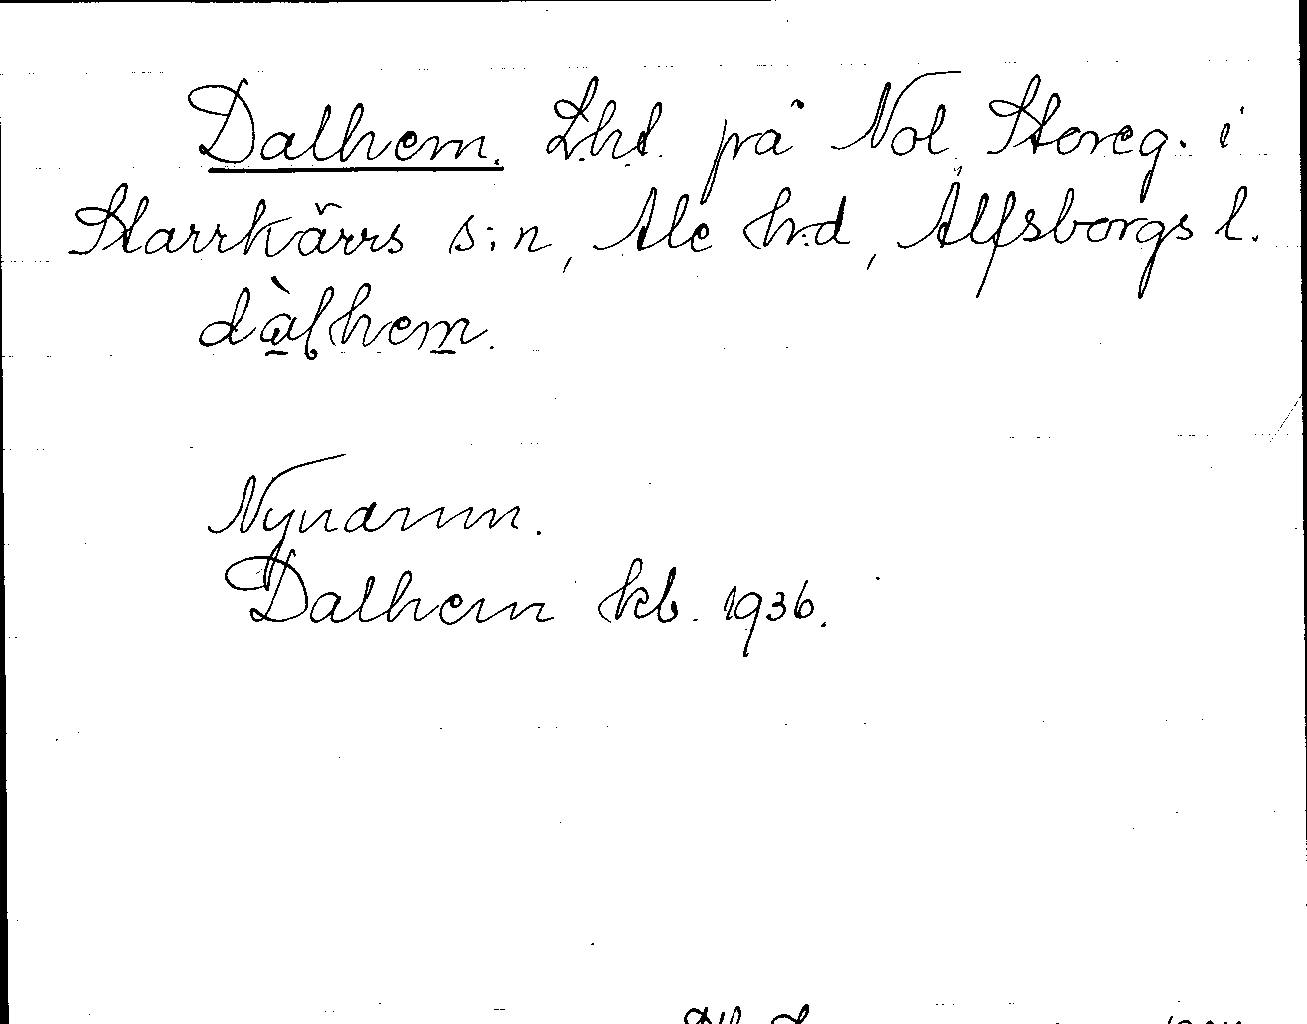 Dalhem. Lht på Nol Storeg. i
Starrkärrs s:n, Ale h:d, Älfsborgs l.
dàlhem.
Nynamn.
Dalhem kb. 1936.